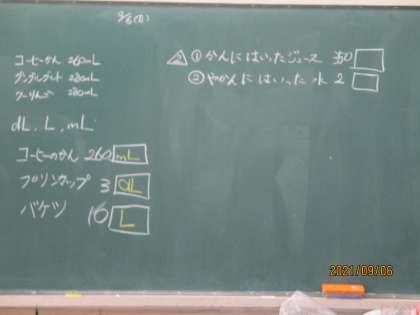 コーヒーかん 260mL
280mL
280mL
dL, L, mL
コーヒーのかん 260 mL
プリンカップ 3 dL
バケツ 10 L
① かんにはいったジュース 350
② やかんにはいった 水 2
2021/09/06